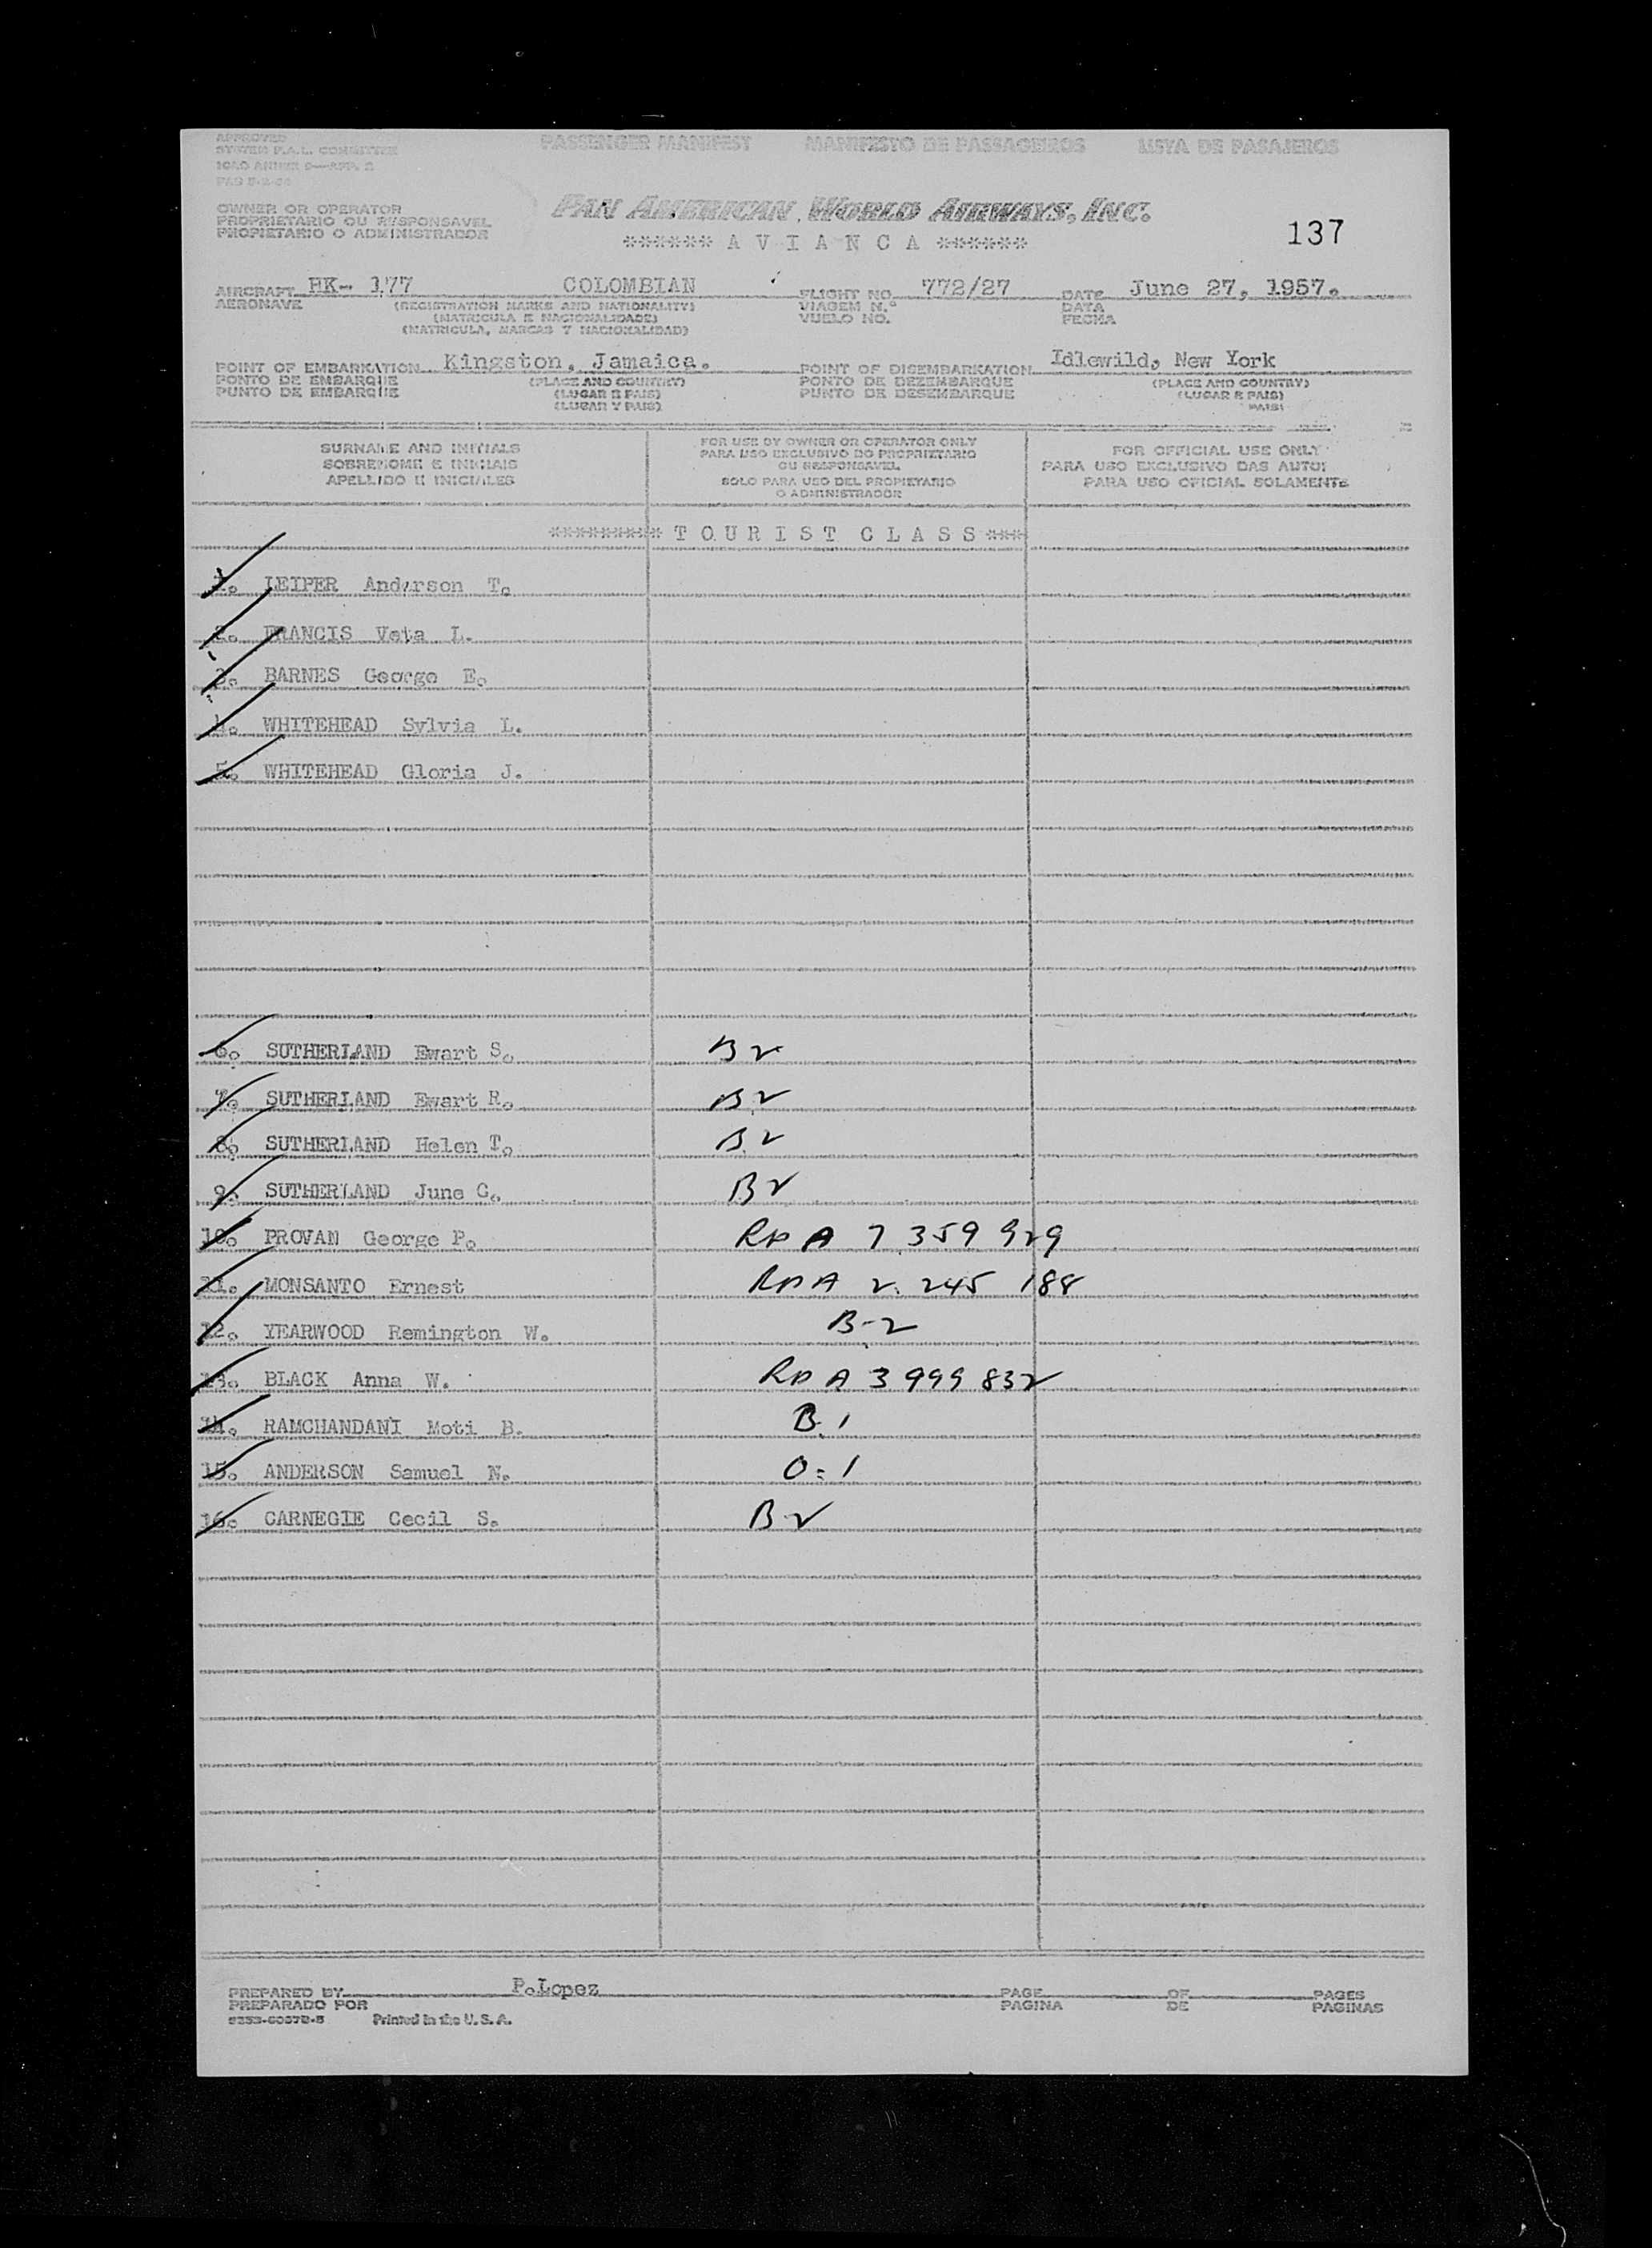 APPROVED PASSENGER MANIFEST MANIFESTO DE PASSAGEIROS LISTA DE PASAJEROS
SYSTEM F.A.L. COMMITTEE
ICAO ANNEX 9—APP. 2
OWNER OR OPERATOR PAN AMERICAN WORLD AIRWAYS, INC.
PROPRIETARIO OU RESPONSAVEL
PROPIETARIO O ADMINISTRADOR
****** A V I A N C A ****** 137
AIRCRAFT HK- 177 COLOMBIAN FLIGHT NO. 772/27 DATE June 27, 1957.
AERONAVE (REGISTRATION MARKS AND NATIONALITY) VIAGEM N.º DATA
(MATRICULA E NACIONALIDADE) VUELO NO. FECHA
(MATRICULA, MARCAS Y NACIONALIDAD)
POINT OF EMBARKATION Kingston, Jamaica. POINT OF DISEMBARKATION Idlewild, New York
PONTO DE EMBARQUE (PLACE AND COUNTRY) PONTO DE DEZEMBARQUE (PLACE AND COUNTRY)
PUNTO DE EMBARQUE (LUGAR E PAIS) PUNTO DE DESEMBARQUE (LUGAR E PAIS)
(LUGAR Y PAIS) PAIS)
SURNAME AND INITIALS
SOBRENOME E INICIAIS
APELLIDO E INICIALES
FOR USE BY OWNER OR OPERATOR ONLY
PARA USO EXCLUSIVO DO PROPRIETARIO
OU RESPONSAVEL
SOLO PARA USO DEL PROPIETARIO
O ADMINISTRADOR
FOR OFFICIAL USE ONLY
PARA USO EXCLUSIVO DAS AUTO
PARA USO OFICIAL SOLAMENTE
********* T O U R I S T C L A S S ***
1. LEIPER Anderson T.
2. FRANCIS Veta L.
3. BARNES George E.
4. WHITEHEAD Sylvia L.
5. WHITEHEAD Gloria J.
6. SUTHERLAND Ewart S. B 2
7. SUTHERLAND Ewart R. B 2
8. SUTHERLAND Helen T. B 2
9. SUTHERLAND June C. B 2
10. PROVAN George P. RP A 7 359 929
11. MONSANTO Ernest RP A 2 245 188
12. YEARWOOD Remington W. B-2
13. BLACK Anna W. RP A 3 999 832
14. RAMCHANDANI Moti B. B 1
15. ANDERSON Samuel N. O-1
16. CARNEGIE Cecil S. B-2
PREPARED BY P.Lopez PAGE OF PAGES
PREPARADO POR PAGINA DE PAGINAS
Printed in the U. S. A.